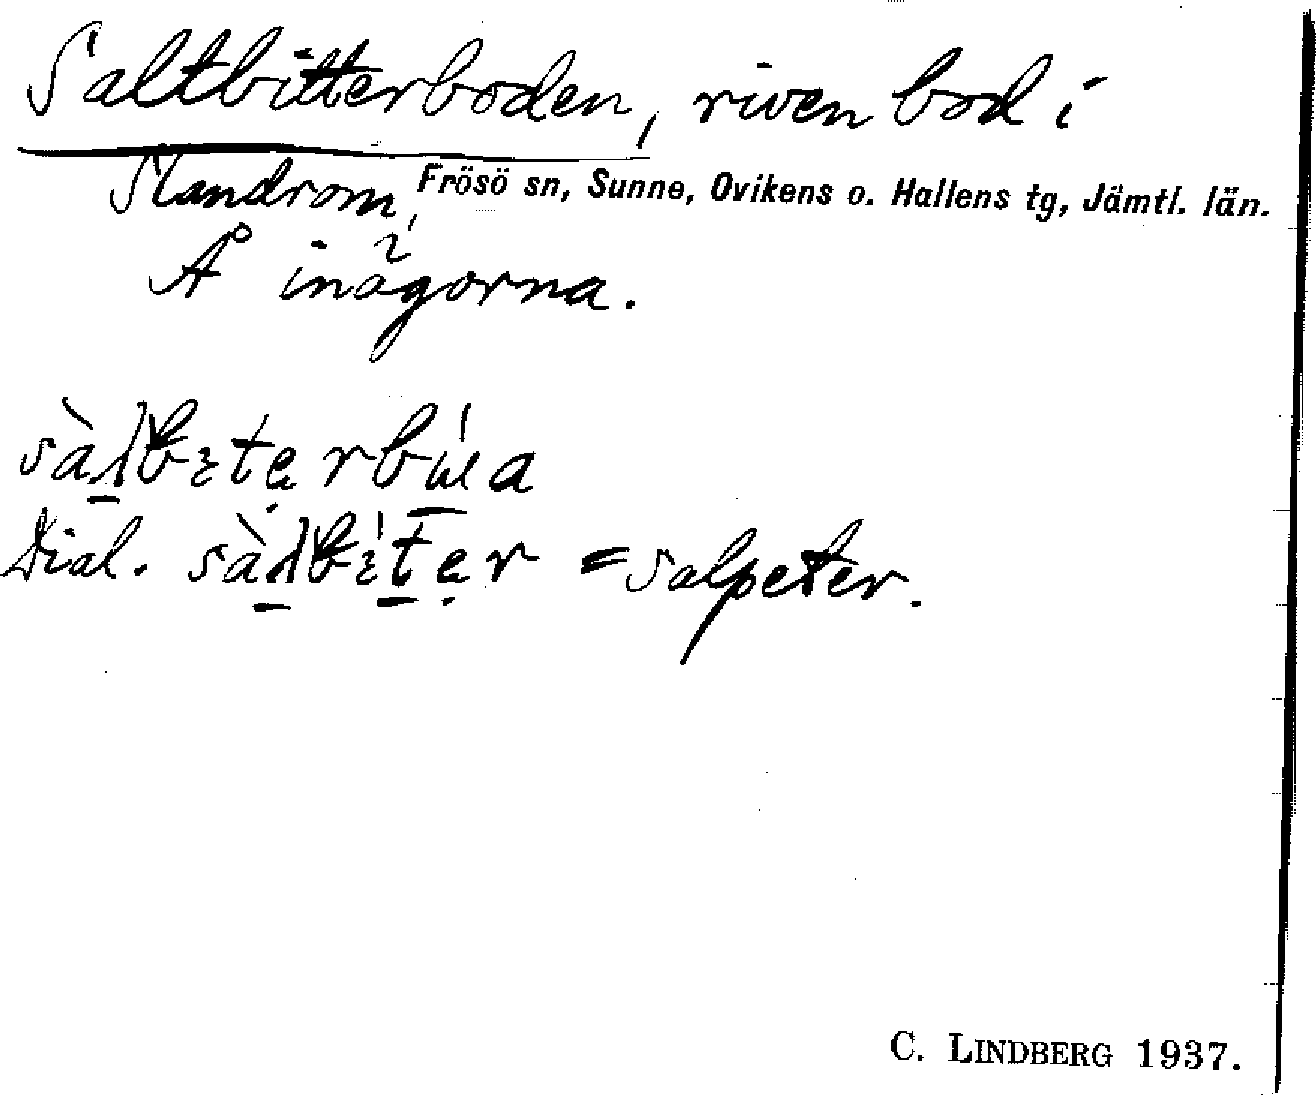 Saltbitterboden, riven bod i
Slandrom, Frösö sn, Sunne, Ovikens o. Hallens tg, Jämtl. län.
Å inägorna.
Dial. = salpeter.
C. LINDBERG 1937.